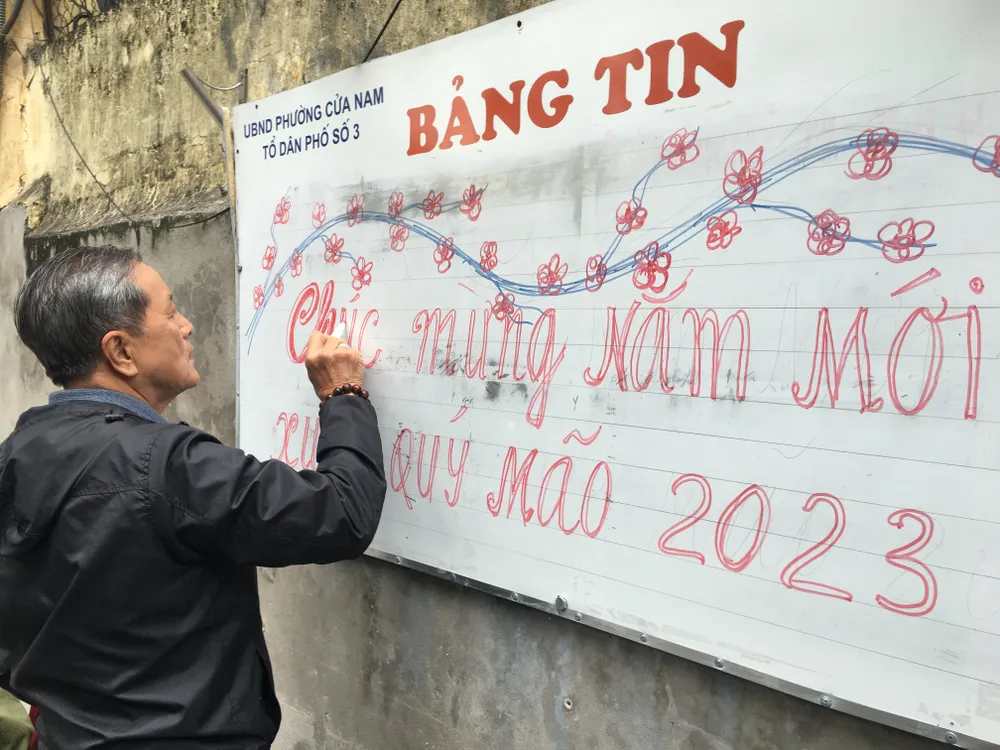 UBND PHƯỜNG CỬA NAM
TỔ DÂN PHỐ SỐ 3
BẢNG TIN
Chúc mừng Năm Mới
QUÝ MÃO 2023